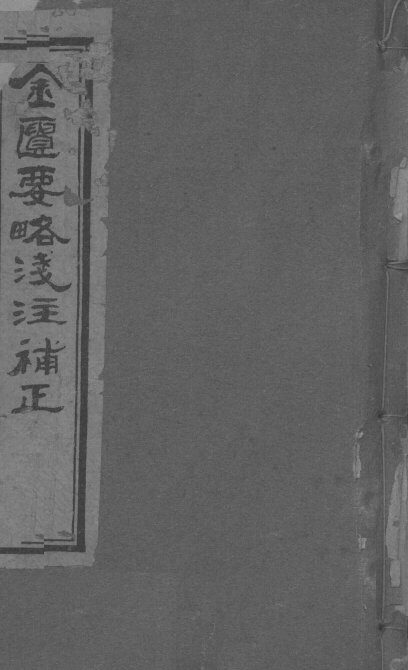 金匱要略淺注補正